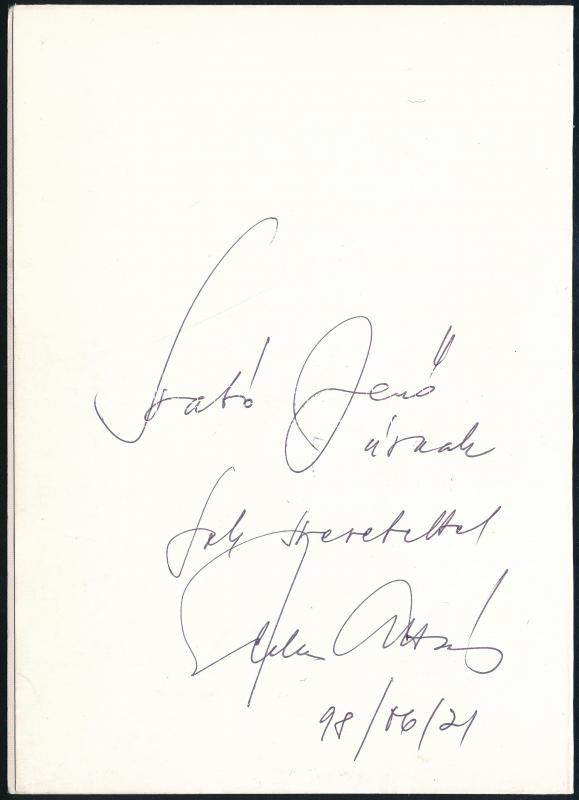 Szabó Jenő
úrnak
Sok szeretettel
98/06/21